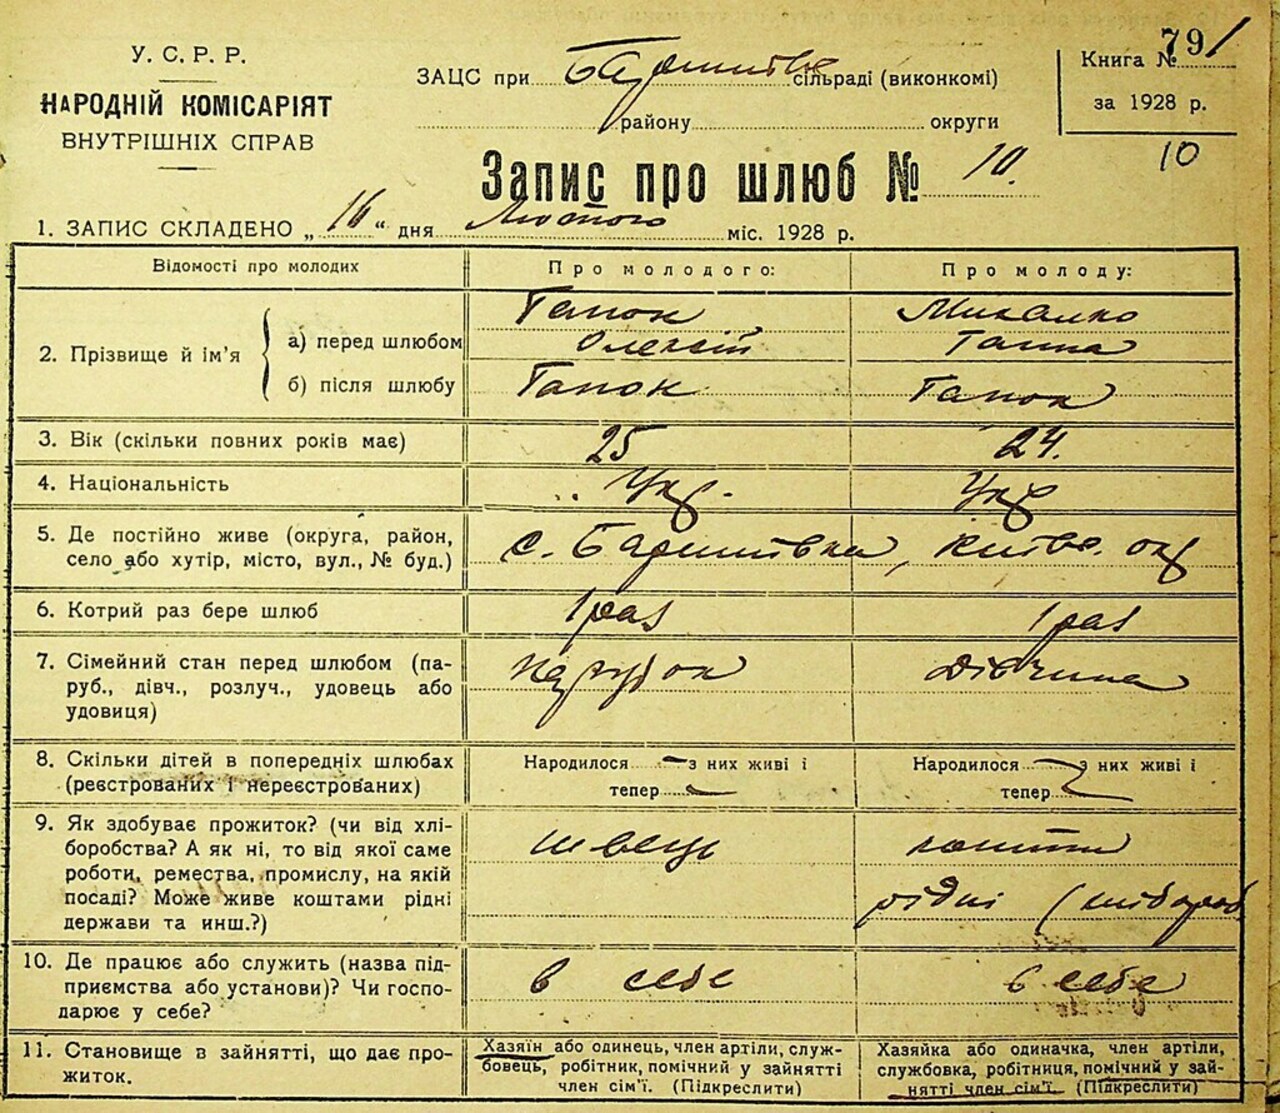 У. С. Р. Р.
НАРОДНІЙ КОМІСАРІЯТ
ВНУТРІШНІХ СПРАВ
ЗАЦС при Баришівс сільраді (виконкомі)
району округи
791
Книга №
за 1928 р.
10
Запис про шлюб № 10.
1. ЗАПИС СКЛАДЕНО „16“ дня Лютого міс. 1928 р.
Відомості про молодих
Про молодого:
Про молоду:
2. Прізвище й ім'я
а) перед шлюбом
Гапок
Олексій
Михалко
Ганна
б) після шлюбу
Гапок
Гапок
3. Вік (скільки повних років має)
25
24.
4. Національність
Укр.
Укр
5. Де постійно живе (округа, район,
село або хутір, місто, вул., № буд.)
с. Баришівка, Київс. окр
6. Котрий раз бере шлюб
1 раз
1 раз
7. Сімейний стан перед шлюбом (па-
руб., дівч., розлуч., удовець або
удовиця)
парубок
дівчина
8. Скільки дітей в попередніх шлюбах
(реєстрованих і нереєстрованих)
Народилося — з них живі і
тепер —
Народилося — з них живі і
тепер —
9. Як здобуває прожиток? (чи від хлі-
боробства? А як ні, то від якої саме
роботи, ремества, промислу, на якій
посаді? Може живе коштами рідні
держави та инш.?)
швець
кошти
рідні (хлібороб
10. Де працює або служить (назва під-
приємства або установи)? Чи госпо-
дарює у себе?
в себе
в себе
11. Становище в зайнятті, що дає про-
житок.
Хазяїн або одинець, член артіли, служ-
бовець, робітник, помічний у зайнятті
член сім'ї. (Підкреслити)
Хазяйка або одиначка, член артіли,
службовка, робітниця, помічний у зай-
нятті член сім'ї. (Підкреслити)